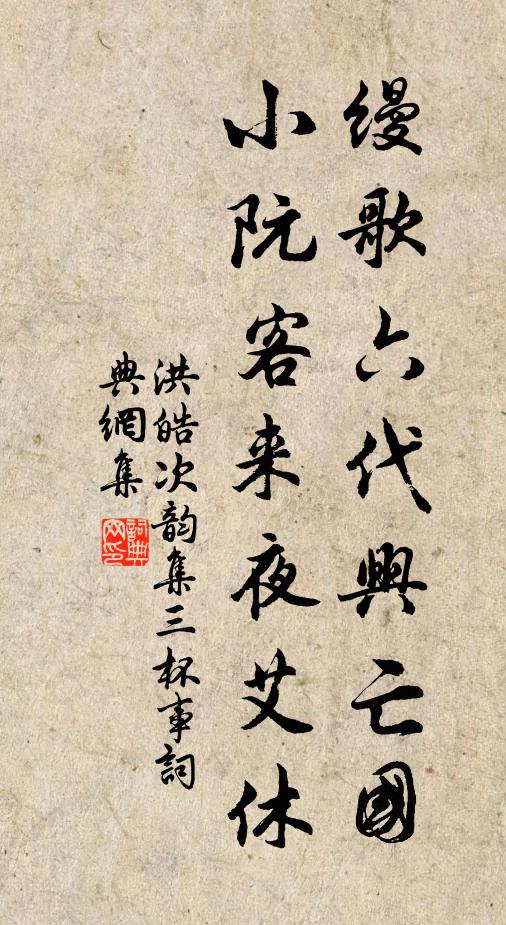 缦歌六代興亡國
小阮客来夜艾休
洪皓次韵集三杯事詞
典網集
詞典網印